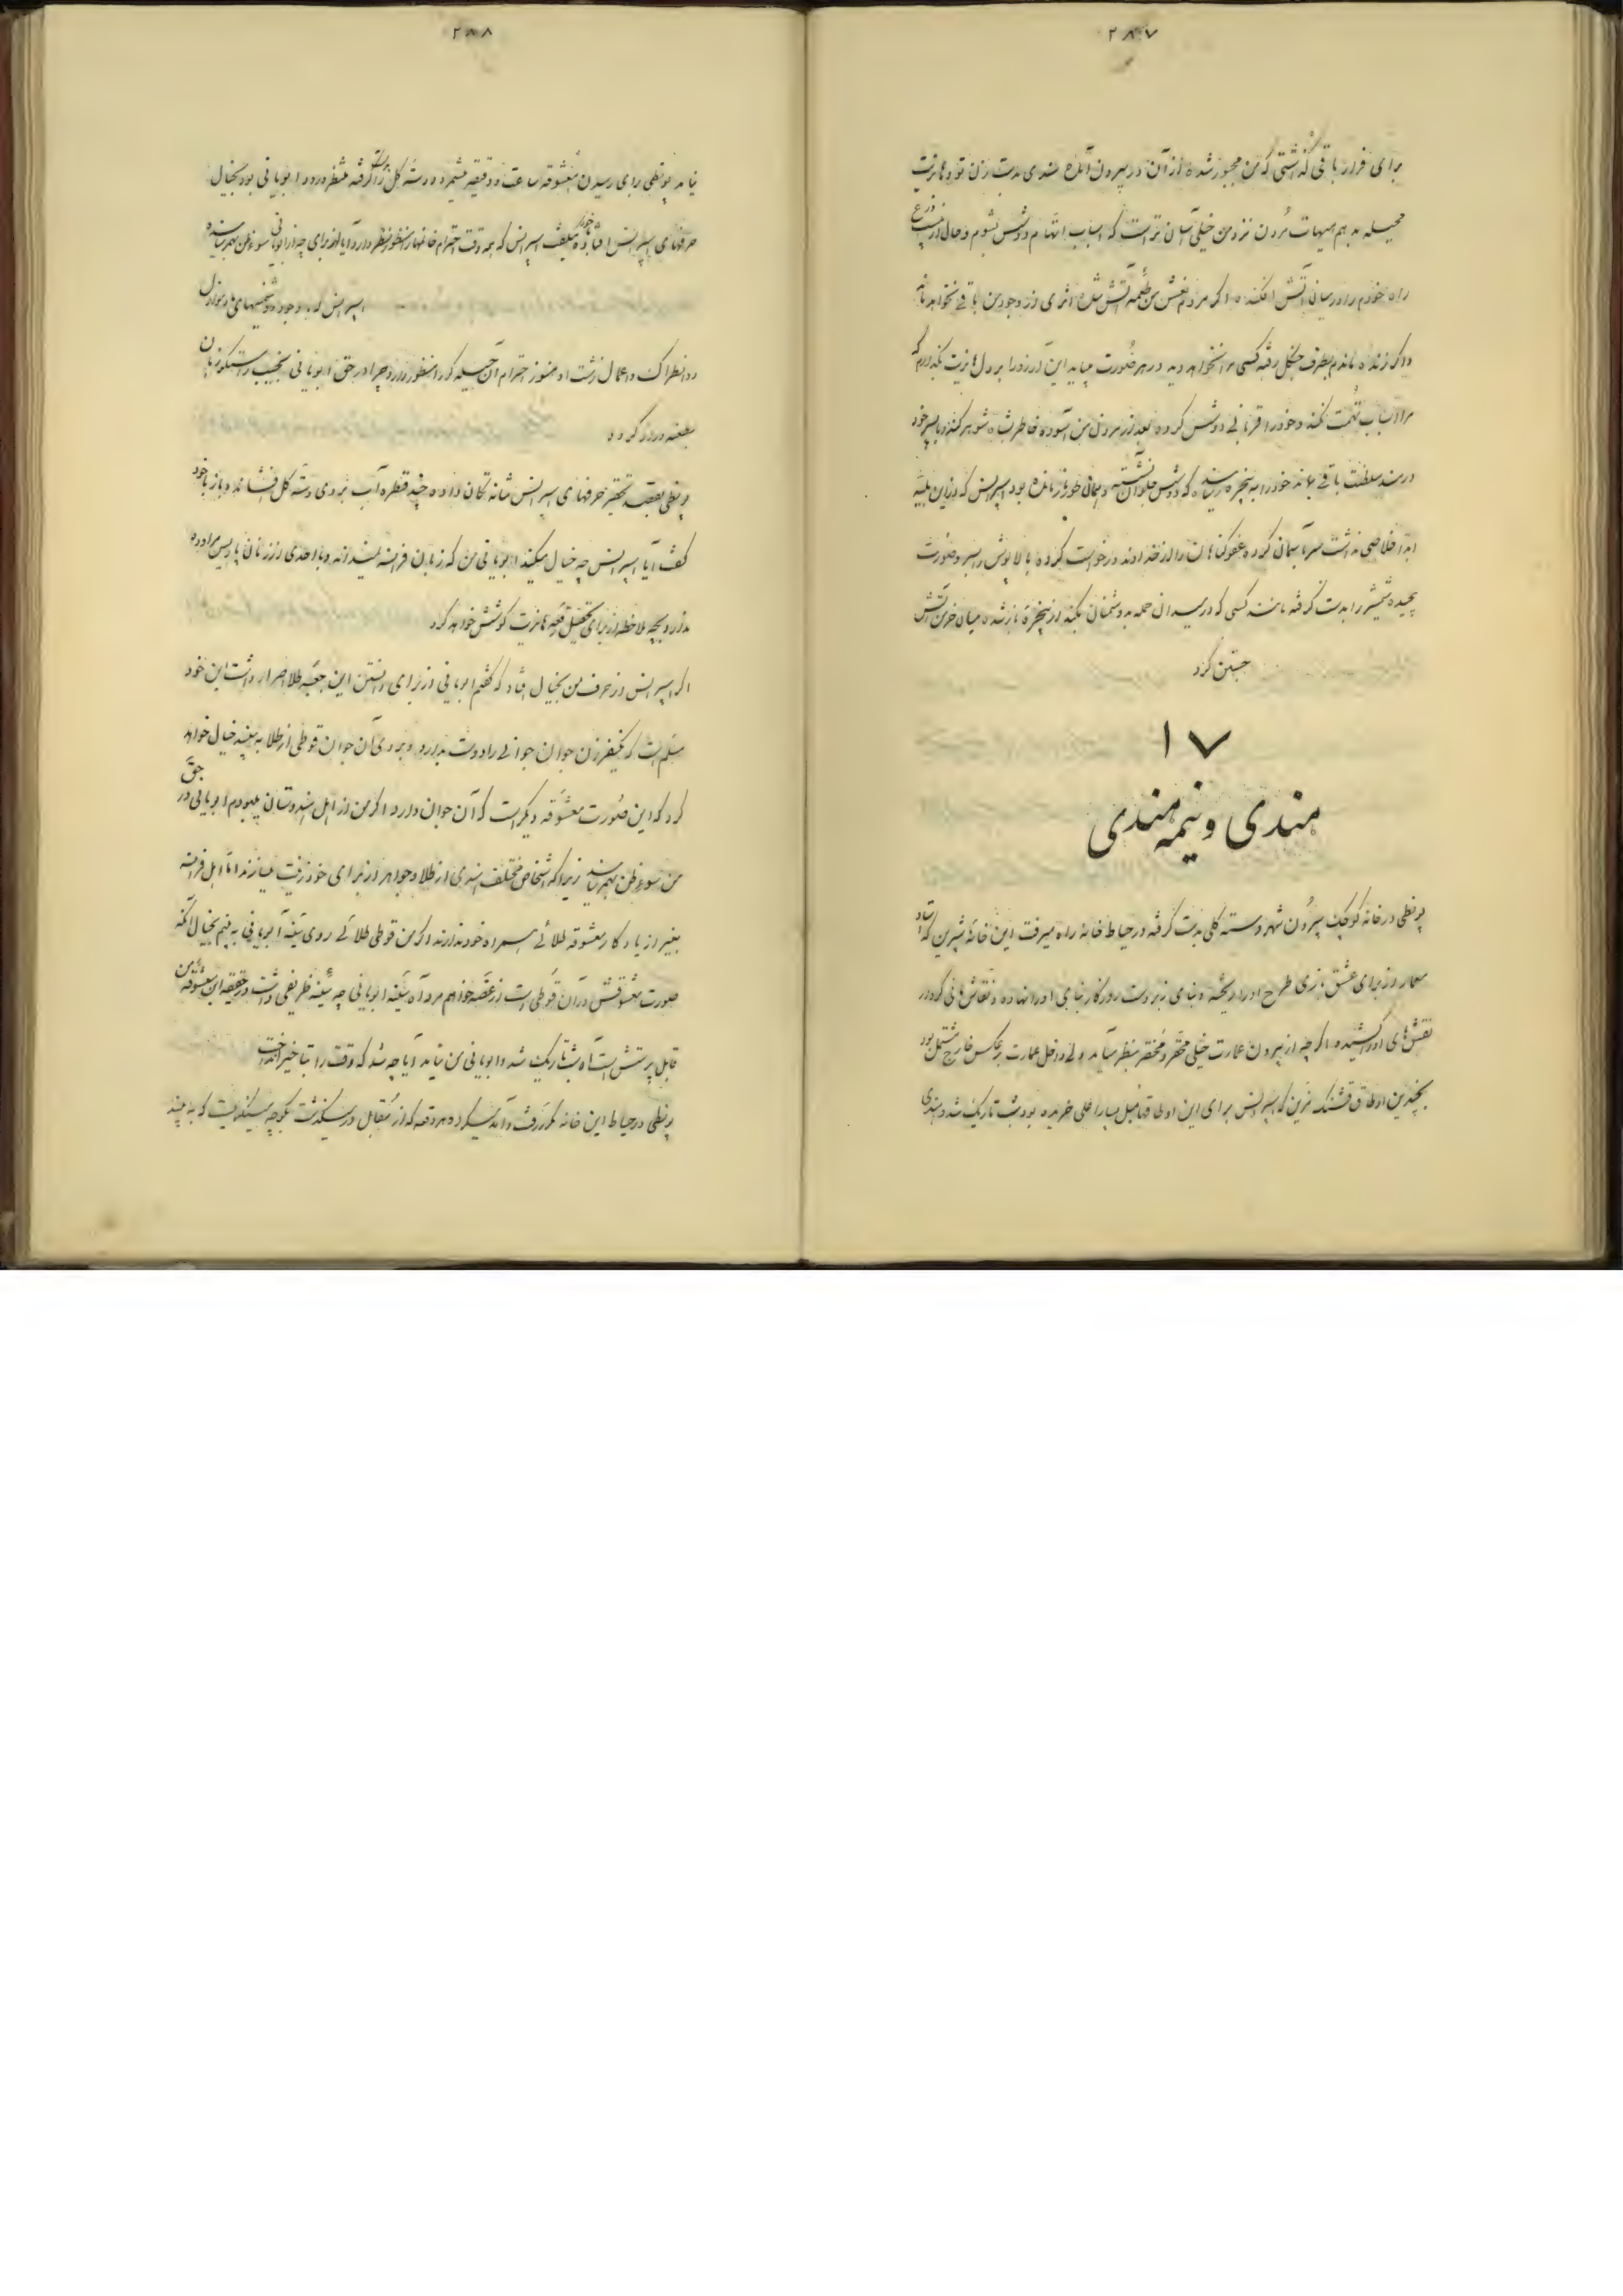 ۲۸۷
برای فرار باقی گذاشتی که من مجبور شده از آن در بیرون آمده بندی بدست زن تو و هانریت
جمیله بدهم هیهات مردن نزد من خیلی آسان تر است که اسباب اتهام دوشس بشوم و حال
راه خودم را در میان آتش افکنده اگر مردم نعش من طعمه آتش شده اثری از وجود من باقی نخواهد ماند
و اگر زنده ماندم بطرف جنگل رفته کسی مرا نخواهد دید در هر صورت میباید این آرزو را بر دل هانریت بگذارم که
مرا اسباب تهمت نکند و خود را قربانی دوشس کرده بعد از مردن من آسوده خاطر شاه شوهر کند و با پسر خود
در مسند سلطنت باقی بماند خود را به پنجره رسانیده که دوشس جلو آن نشسته و بهمان طور باز مانده بود اسپرانس که در این بلیه
ابدا خلاصی نداشت سر به آسمان کرده عفو گناهان را از خداوند درخواست کرده بالاپوش را بسر و صورت
پیچیده شمشیر را بدست گرفته مانند کسی که در میدان حمله به دشمنان بکند از پنجره باز شده میان خرمن آتش
جستن کرد
۱۷
هندی و نیمه هندی
پونطی در خانه کوچک بیرون شهر دسته گلی بدست گرفته در حیاط خانه راه میرفت این خانه شیرین که استاد
معمار از برای عشق بازی طرح او را ریخته و بنای زبردست روزگار بنای او را نهاده و نقاش مانی کردار
نقش‌های او را کشیده اگرچه از بیرون عمارت خیلی محقر و مختصر بنظر می‌آمد ولی داخل عمارت بر عکس خارج مشتمل بود
بچندین اوطاق قشنگ مزین که اسپرانس برای این اوطاقها مبل بسیار اعلی خریده بود شب تاریک شد و هندی
۲۸۸
نیامد پونطی برای رسیدن معشوقه ساعت و دقیقه میشمرد و دسته گل را گرفته منتظر ورود ایوبانی بود بخیال
حرفهای اسپرانس افتاده خود گفت اسپرانس که همه وقت احترام خانمها را منظور نظر دارد آیا از برای چه از ایوبانی سوء ظن بهم رسانیده
اسپرانس که با وجود دشمنیهای مادموازل
دانطراک و اعمال زشت او هنوز احترام آن جمیله را منظور دارد چرا در حق ایوبانی نجیب راستگو زبان
بطعنه دراز کرد
پونطی بقصد تحقیر حرفهای اسپرانس شانه تکان داده چند قطره آب بروی دسته گل فشاند و باز با خود
گفت آیا اسپرانس چه خیال میکند ایوبانی من که زبان فرانسه نمیداند و با احدی از زنان پاریس مراوده
ندارد بچه ملاحظه از برای تحصیل جعبه هانریت کوشش خواهد کرد
اگر اسپرانس از حرف من بخیال افتاد که گفتم ایوبانی از برای داشتن این جعبه طلا اصرار داشت این خود
مسلم است که یکنفر زن جوان جوانی را دوست بدارد و بر روی آن جوان قوطی از طلا ببیند خیال خواهد
کرد که این صورت معشوقه دیگر است که آن جوان دارد اگر من از اهل هندوستان میبودم ایوبانی در حق
من سوء ظن بهم نمیرسانید زیرا که اشخاص مختلف هندی از طلا و جواهر از برای خود زینت میسازند اما اهل فرانسه
بغیر از یادگار معشوقه طلائی همراه خود ندارند اگر من قوطی طلائی روی سینه ایوبانی ببینم بخیال آنکه
صورت معشوقش در آن قوطی است از غصه خواهم مرد آه سینه ایوبانی چه سینه ظریفی داشت در حقیقت این معشوقه من
قابل پرستش است آه شب تاریک شد و ایوبانی من نیامد آیا چه شد که وقت را بتأخیر انداخت
پونطی در حیاط این خانه مکرر رفت و آمد میکرد و هر دفعه که از مقابل در میگذشت بکوچه میگریست که به بیند